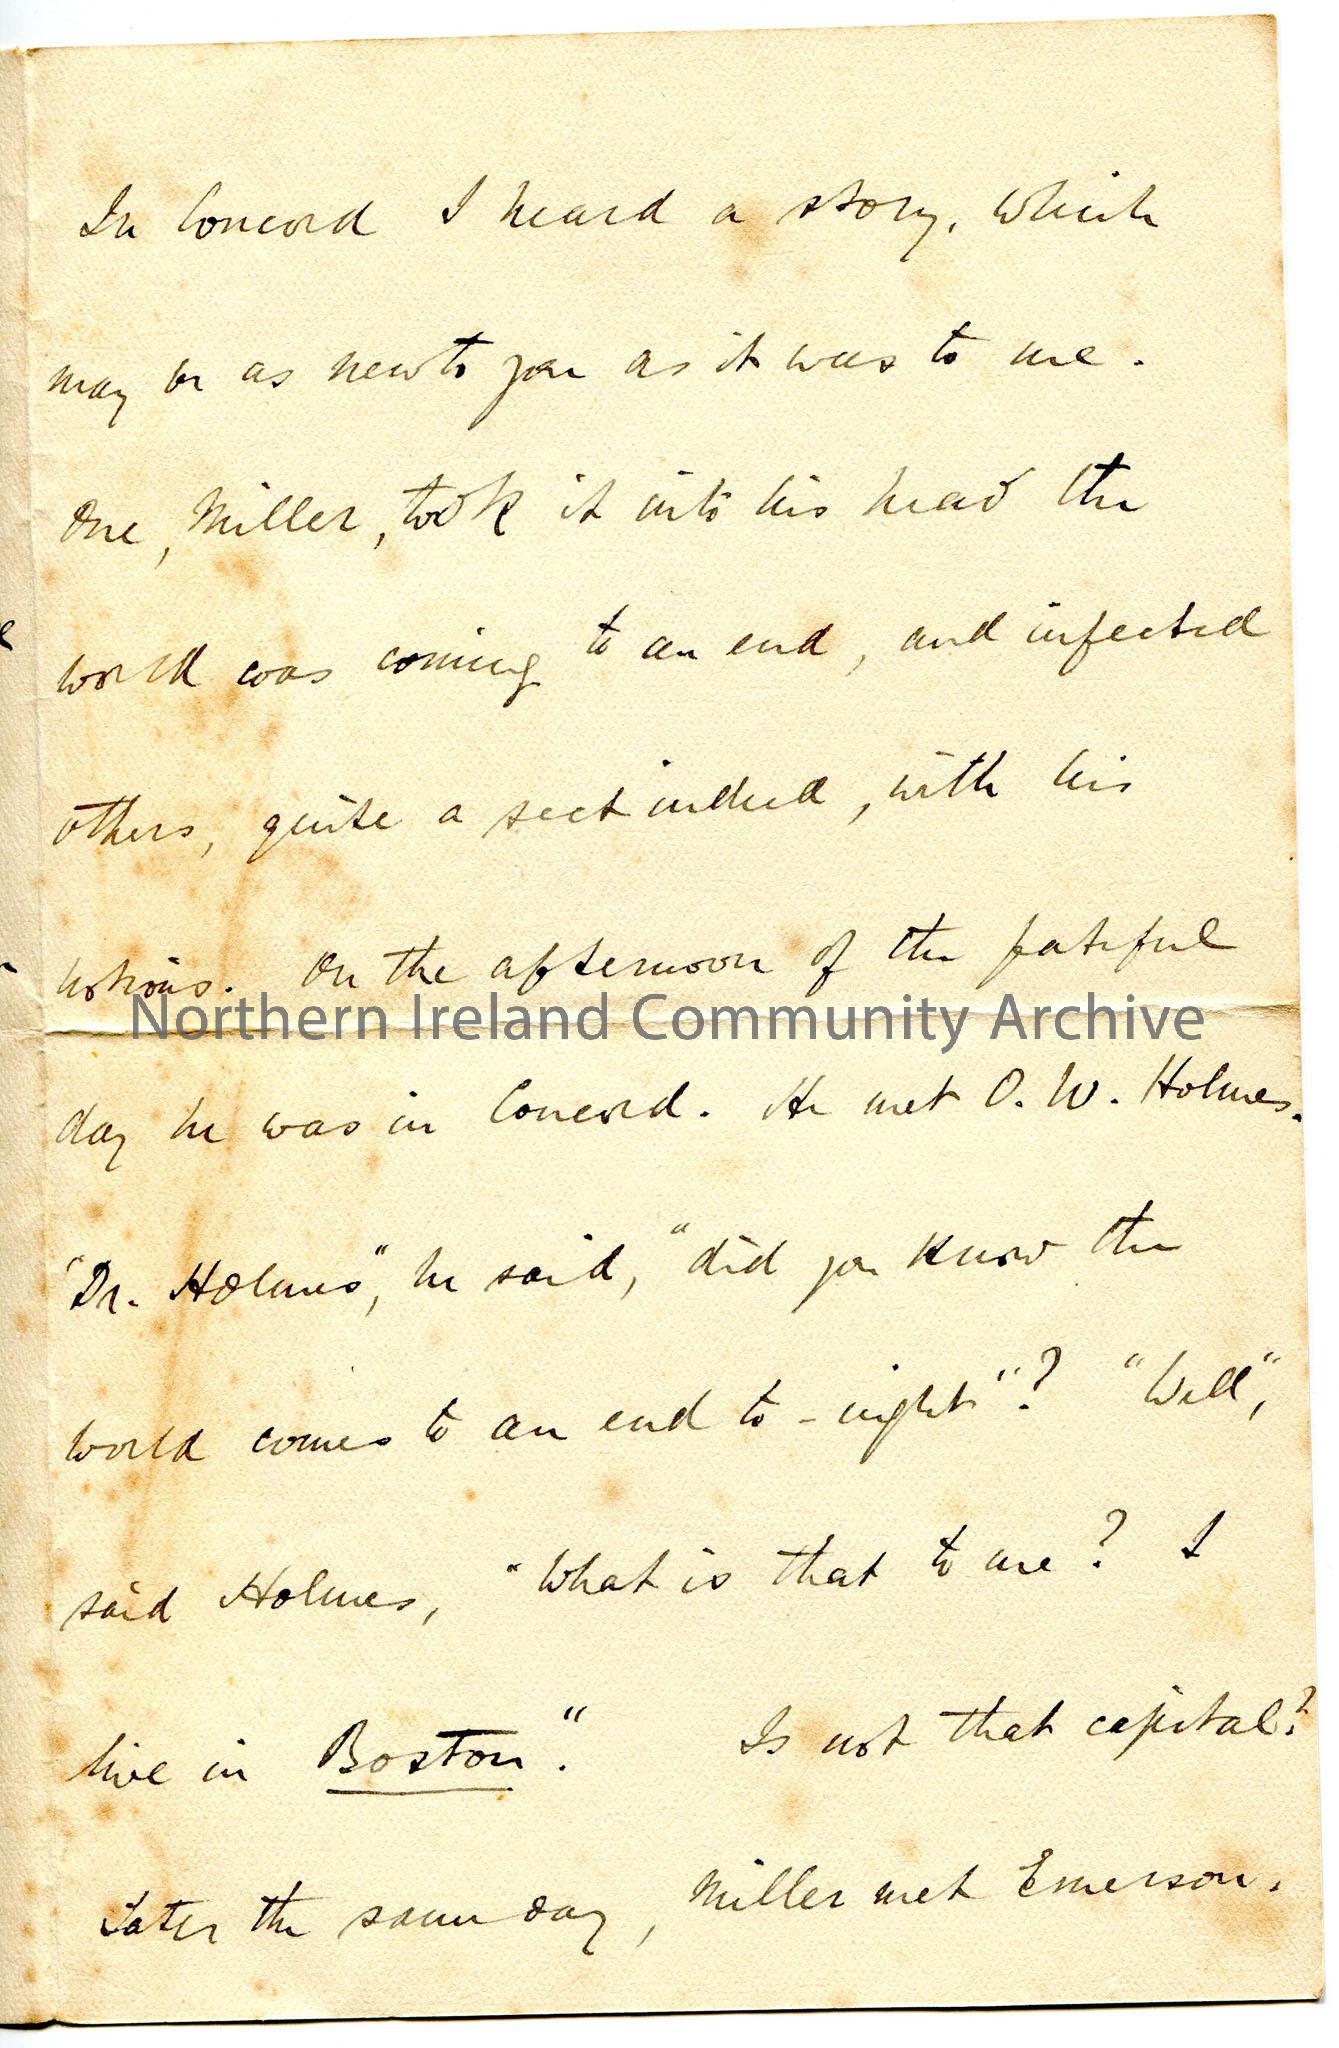 In Concord I heard a story, which
may be as new to you as it was to me.
One, Miller, took it into his head the
world was coming to an end, and infected
others, quite a sect indeed, with his
notions. On the afternoon of the fateful
Northern Ireland Community Archive
day he was in Concord. He met O. W. Holmes.
"Dr. Holmes", he said, "did you know the
world comes to an end to-night"? "Well",
said Holmes, "What is that to me? I
live in Boston." Is not that capital?
Later the same day, Miller met Emerson.